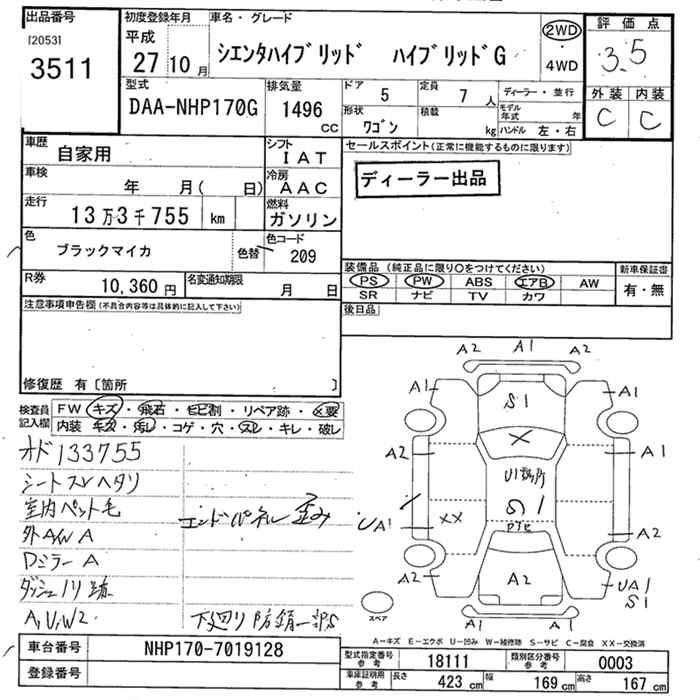 出品番号
[2053]
3511
初度登録年月
平成
27 10 月
車名・グレード
シエンタハイブリッド ハイブリッドG
2WD
・
4WD
評価点
3.5
外装 内装
C C
型式
DAA-NHP170G
排気量
1496
CC
ドア 5
定員 7 人
形状
ワゴン
積載
kg
ディーラー・並行
モデル
年式 年
ハンドル 左・右
車歴
自家用
シフト
IAT
車検
年 月( 日)
冷房
AAC
走行
13万3千755 km
燃料
ガソリン
色
ブラックマイカ
色替
色コード
209
R券
10,360円
名変通知期限
月 日
セールスポイント(正常に機能するものに限ります)
ディーラー出品
装備品 (純正品に限り○をつけてください)
PS PW ABS エアB AW
SR ナビ TV カワ
新車保証書
有・無
後日品
注意事項申告欄(不具合内容等は具体的に記入して下さい)
修復歴 有〔箇所 〕
検査員
記入欄
FW キズ・飛石・ヒビ割・リペア跡・×要
内装 キズ・汚レ・コゲ・穴・スレ・キレ・破レ
オド133755
シートスレヘタリ
室内ペット毛
エンドパネル歪み
外AW A
Dミラー A
ダッシュノリ跡
A,U,W2
下廻り防錆一部S
A2 A1 A2
A1 S1 A1
×
A2 A1
U1数ヶ所
S1
XX
UA1 A2
A2 A2
UA1
S1
A1 A1
スペア
A-キズ E-エクボ U-凹み W-補修跡 S-サビ C-腐食 XX-交換済
車台番号
NHP170-7019128
登録番号
型式指定番号
参考
18111
類別区分番号
参考
0003
車庫証明用
参考
長さ 423 cm
幅 169 cm
高さ 167 cm